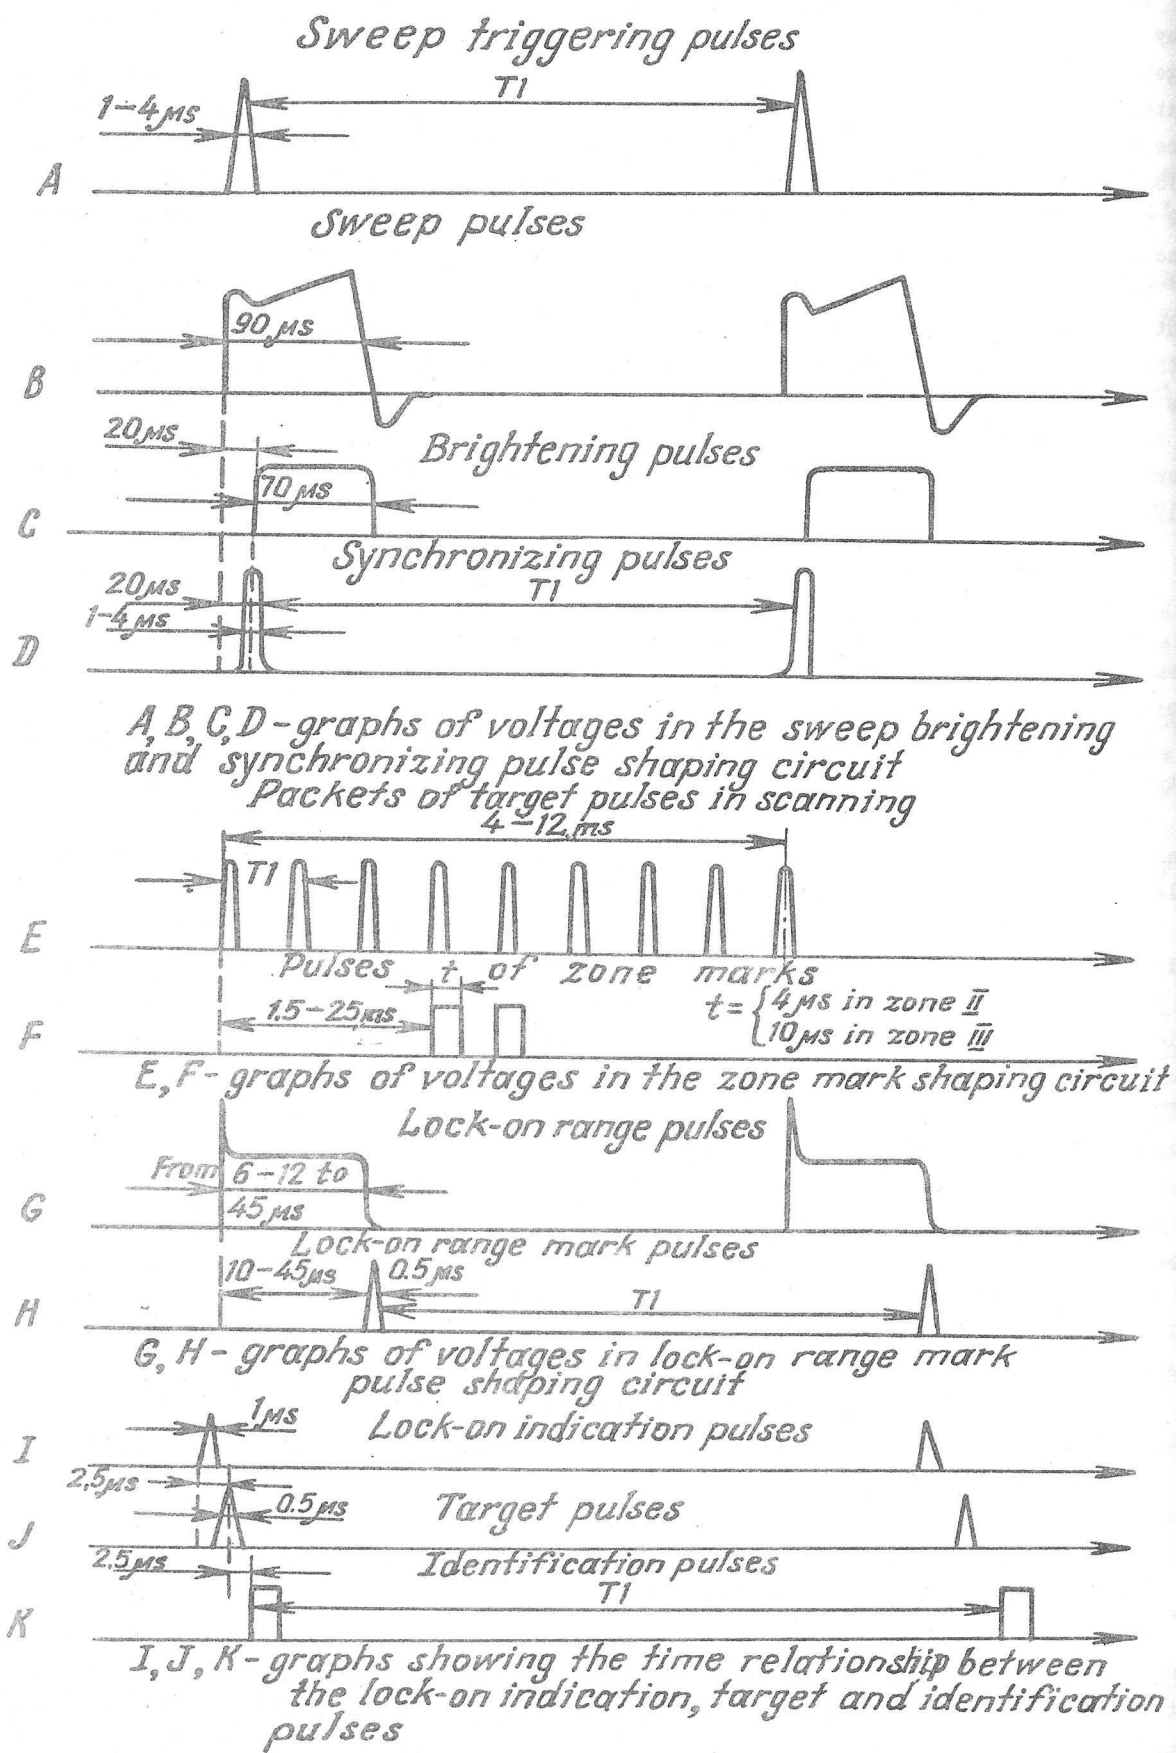 Sweep triggering pulses
T1
1-4 μs
A
Sweep pulses
90 μs
B
20 μs
Brightening pulses
70 μs
C
Synchronizing pulses
20 μs
T1
1-4 μs
D
A, B, C, D - graphs of voltages in the sweep brightening
and synchronizing pulse shaping circuit
Packets of target pulses in scanning
4-12 ms
T1
E
Pulses t of zone marks
1.5-25 ms
t = { 4 μs in zone II
10 μs in zone III
F
E, F - graphs of voltages in the zone mark shaping circuit
Lock-on range pulses
From 6-12 to
45 μs
G
Lock-on range mark pulses
10-45 μs 0.5 μs
T1
H
G, H - graphs of voltages in lock-on range mark
pulse shaping circuit
1 μs
Lock-on indication pulses
I
2.5 μs
0.5 μs
Target pulses
J
2.5 μs
Identification pulses
T1
K
I, J, K - graphs showing the time relationship between
the lock-on indication, target and identification
pulses